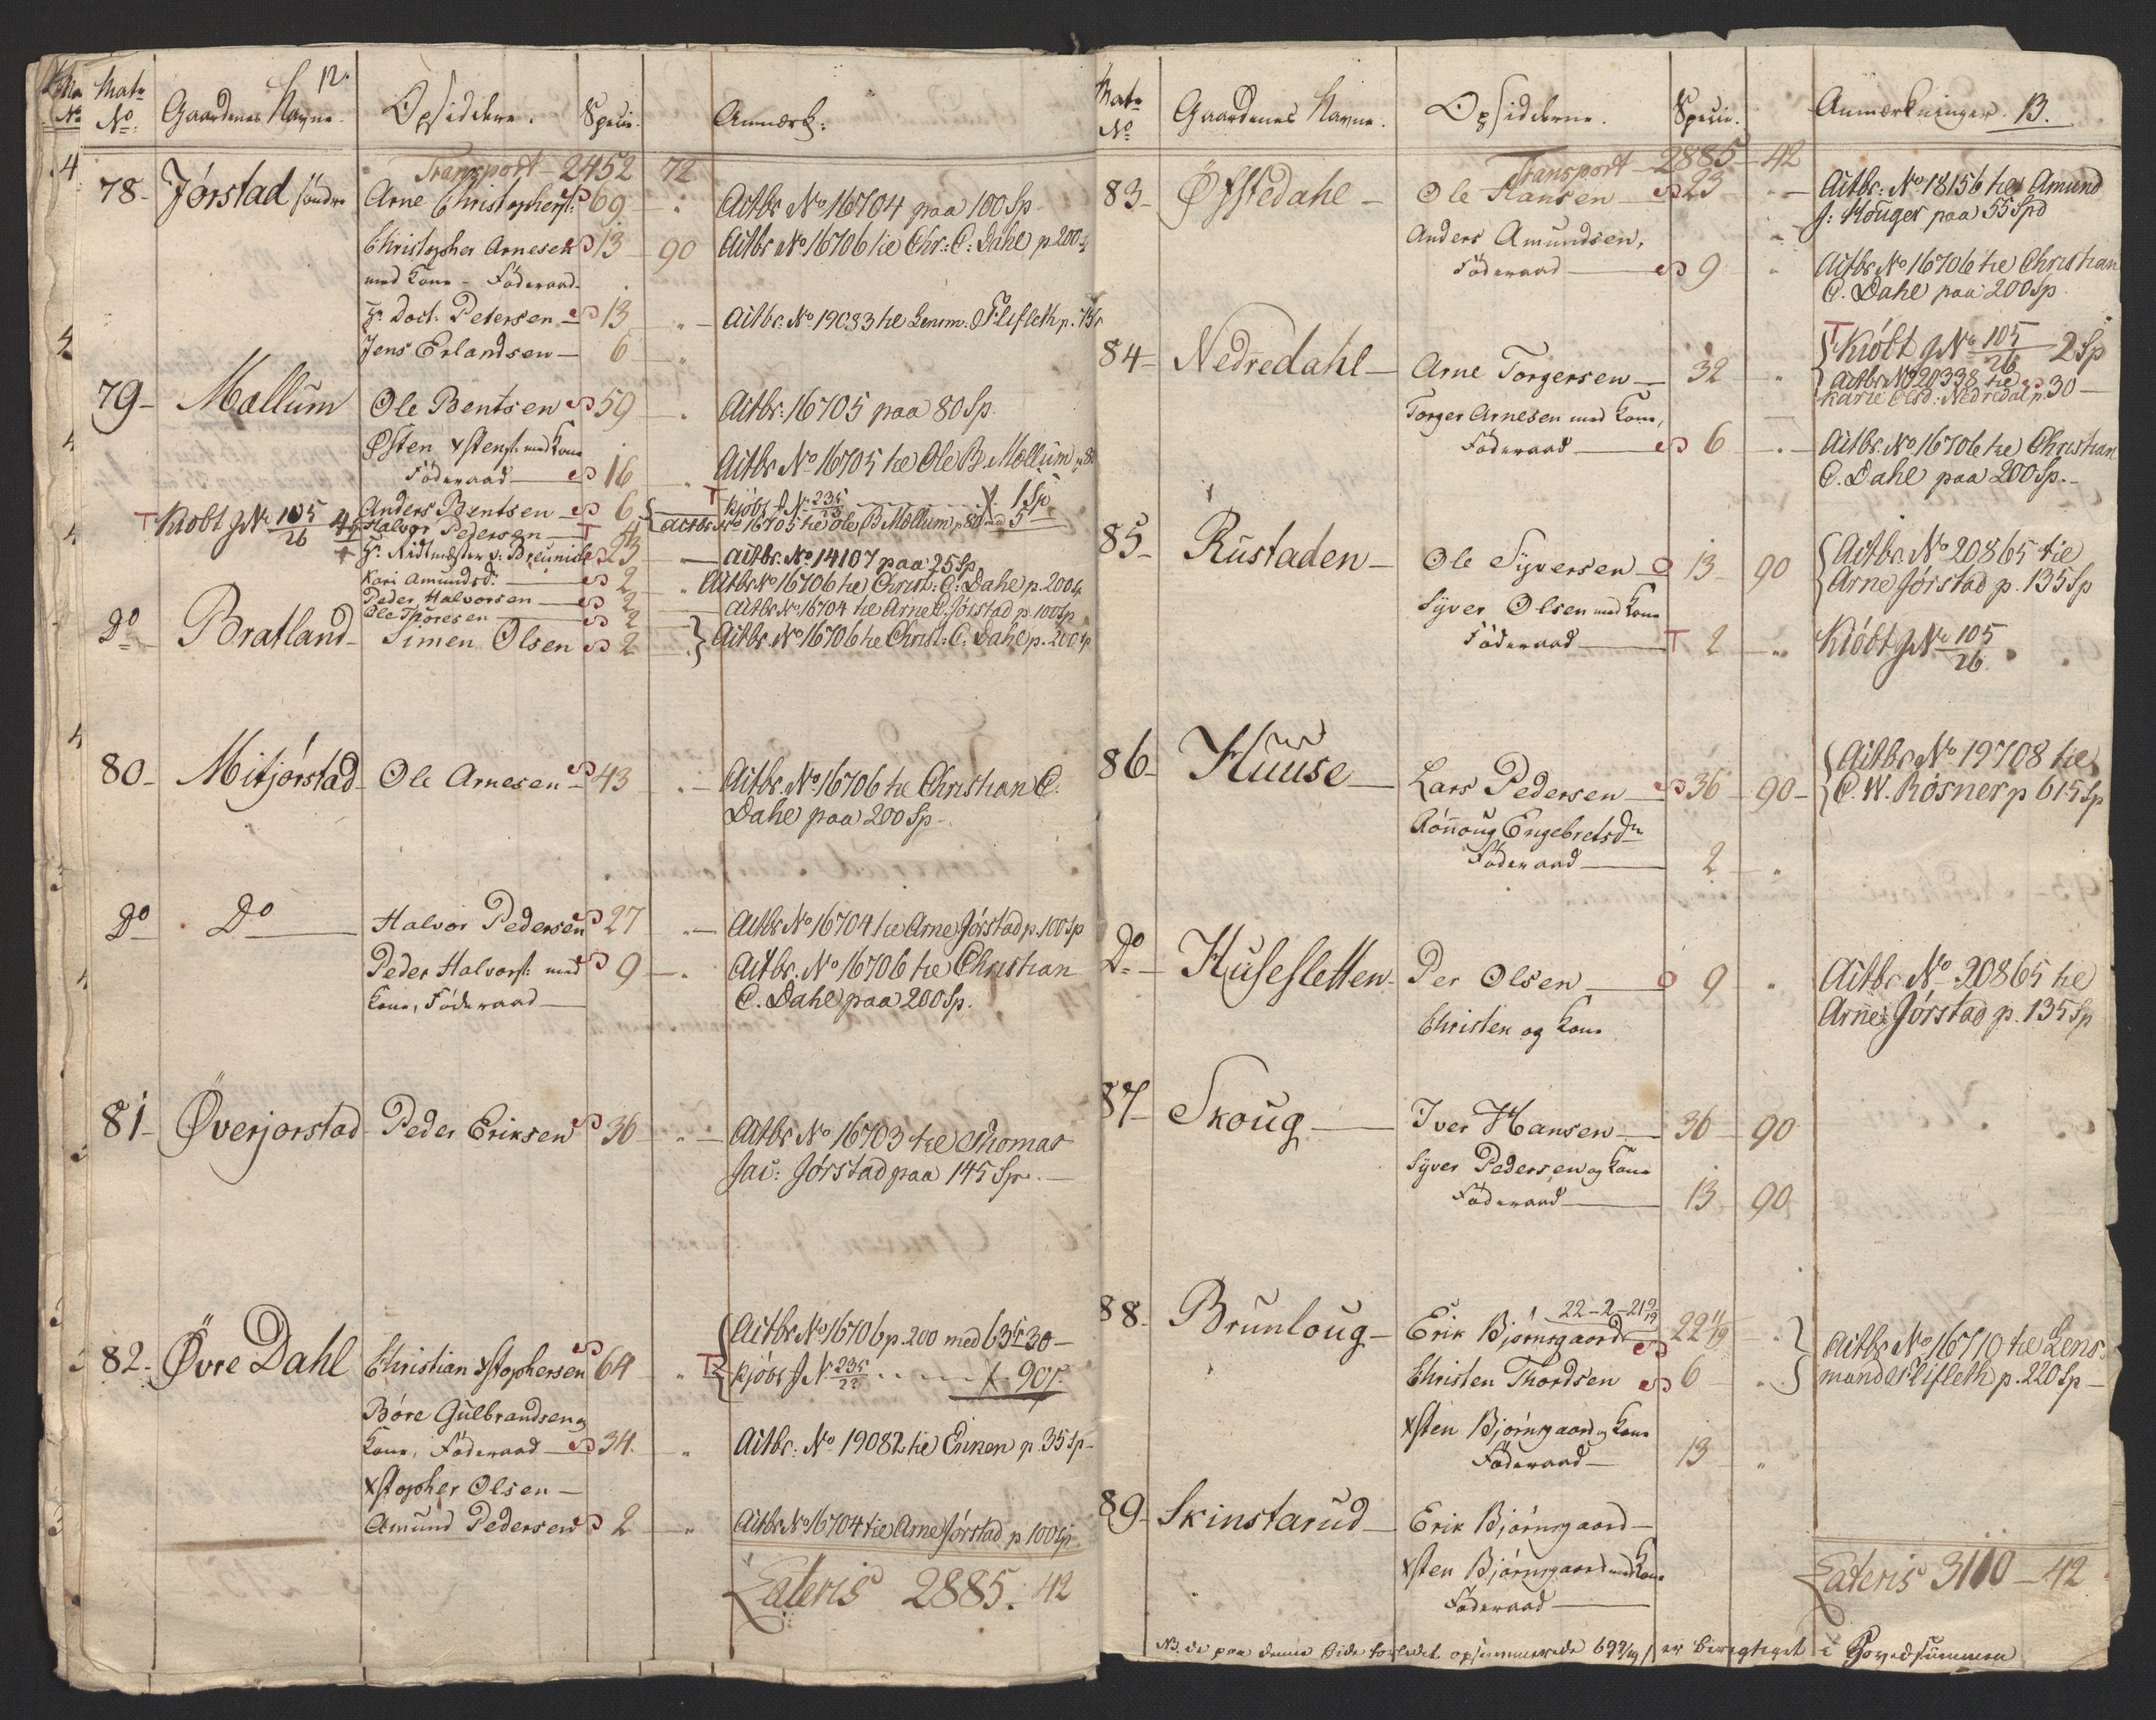 Mat: No Gaardenes Navne. 12. Opsidderne. Specie. Anmærk:
Transport 2452 72
78 Jórstad söndre Arne Christophers: 69 Actbr No 16704 paa 100 Sp
Christopher Arnesen 13 90 Actbr No 16706 til Chr: C: Dahl p 200
med Kone Föderaad
Hr Doct: Petersen 13 Actbr: No 19083 til Lensm: Fliflet p.
Jens Erlandsen 6
79 Mællum Ole Bentsen 59 Actbr: 16705 paa 80 Sp
Østen Xstens: med Kone
Föderaad 16 Actbr No 16705 til Ole B. Mællum p 80
Anders Bentsen 6 Kjöbt f No 235/23 1 Sp
T Kiöbt f No 105/26 Halvor Pedersen T Actbr No 16705 til Ole B Mællum p 80 med 5
Hr. Ridtmester v: 23 Actbr. No 14107 paa 25 Sp
Kari Amundsd: 2 Actbr No 16706 til Christ: C: Dahl p. 200 Sp
Peder Halvorsen 2 Actbr No 16704 til Arne C. Jórstad p 100 Sp
Ole Thoresen 2
Do Bratland Simen Olsen 2 Actbr. No 16706 til Christ: C. Dahl p. 200 Sp
80 Mitjórstad Ole Arnesen 43 Actbr. No 16706 til Christian C.
Dahl paa 200 Sp
Do Do Halvor Pedersen 27 Actbr No 16704 til Arne Jórstad p. 100 Sp
Peder Halvors: med 9 Actbr. No 16706 til Christian
Kone, Föderaad C. Dahl paa 200 Sp.
81 Överjorstad Peder Eriksen 36 Actbr No 16703 til Thomas
Jac: Jórstad paa 145 Sp.
Actbr No 16706 p. 200 med 63 30
82 Övre Dahl Christian Xstophersen 64 T Kjöbt f No 235/23 90
Böre Gulbrandsen og
Kone, Föderaad 34 Actbr: No 19082 til Einen p. 35 Sp
Xstopher Olsen
Amund Pedersen 2 Actbr No 16704 til Arne Jórstad p 100 Sp
Lateris 2885. 42
Mat: No Gaardenes Navne. Opsidderne. Specie. Anmærkninger. 13.
Transport 2885 42
83 Öfstedahl Ole Hansen 23 Actbr: No 18156 til Amund
J: Houger paa 55 Spd
Anders Amundsen,
Föderaad 9 Actbr No 16706 til Christian
C. Dahl paa 200 Sp.
T Kiöbt f No 105/26 2 Sp
84 Nedredahl Arne Torgersen 32 Actbr No 20338 til
Karie Olsd: Nedredal p 30
Torger Arnesen med Kone,
Föderaad 6 Actbr. No 16706 til Christian
C. Dahl paa 200 Sp.
85 Rustaden Ole Syversen 13 90 Actbr. No 20865 til
Arne Jórstad p. 135 Sp
Syver Olsen med Kone
Föderaad T 2 Kiöbt f No 105/26
86 Huuse Lars Pedersen 36 90 Actbr. No 19708 til
C. W. Rosner p 615 Sp
Rönnoug Engebretsd:
Föderaad 2
Do Husesletten Per Olsen 9 Actbr No 20865 til
Arne Jórstad p. 135 Sp
Christen og Kone
87 Skoug Iver Hansen 36 90
Syver Pedersen og Kone
Föderaad 13 90
22-2-21 9/19
88 Brunloug Erik Björnsgaard 22 11/19 Actbr No 16710 til Lens
Christen Thordsen 6 mand Fliflet p. 220 Sp
Xsten Björnsgaard og Kone
Föderaad 13
89 Skinstarud Erik Björnsgaard
Xsten Björnsgaard med Kone
Föderaad
Lateris 3110 42
NB. de paa denne Side opsummerede er berigtiget i Hovedsummen